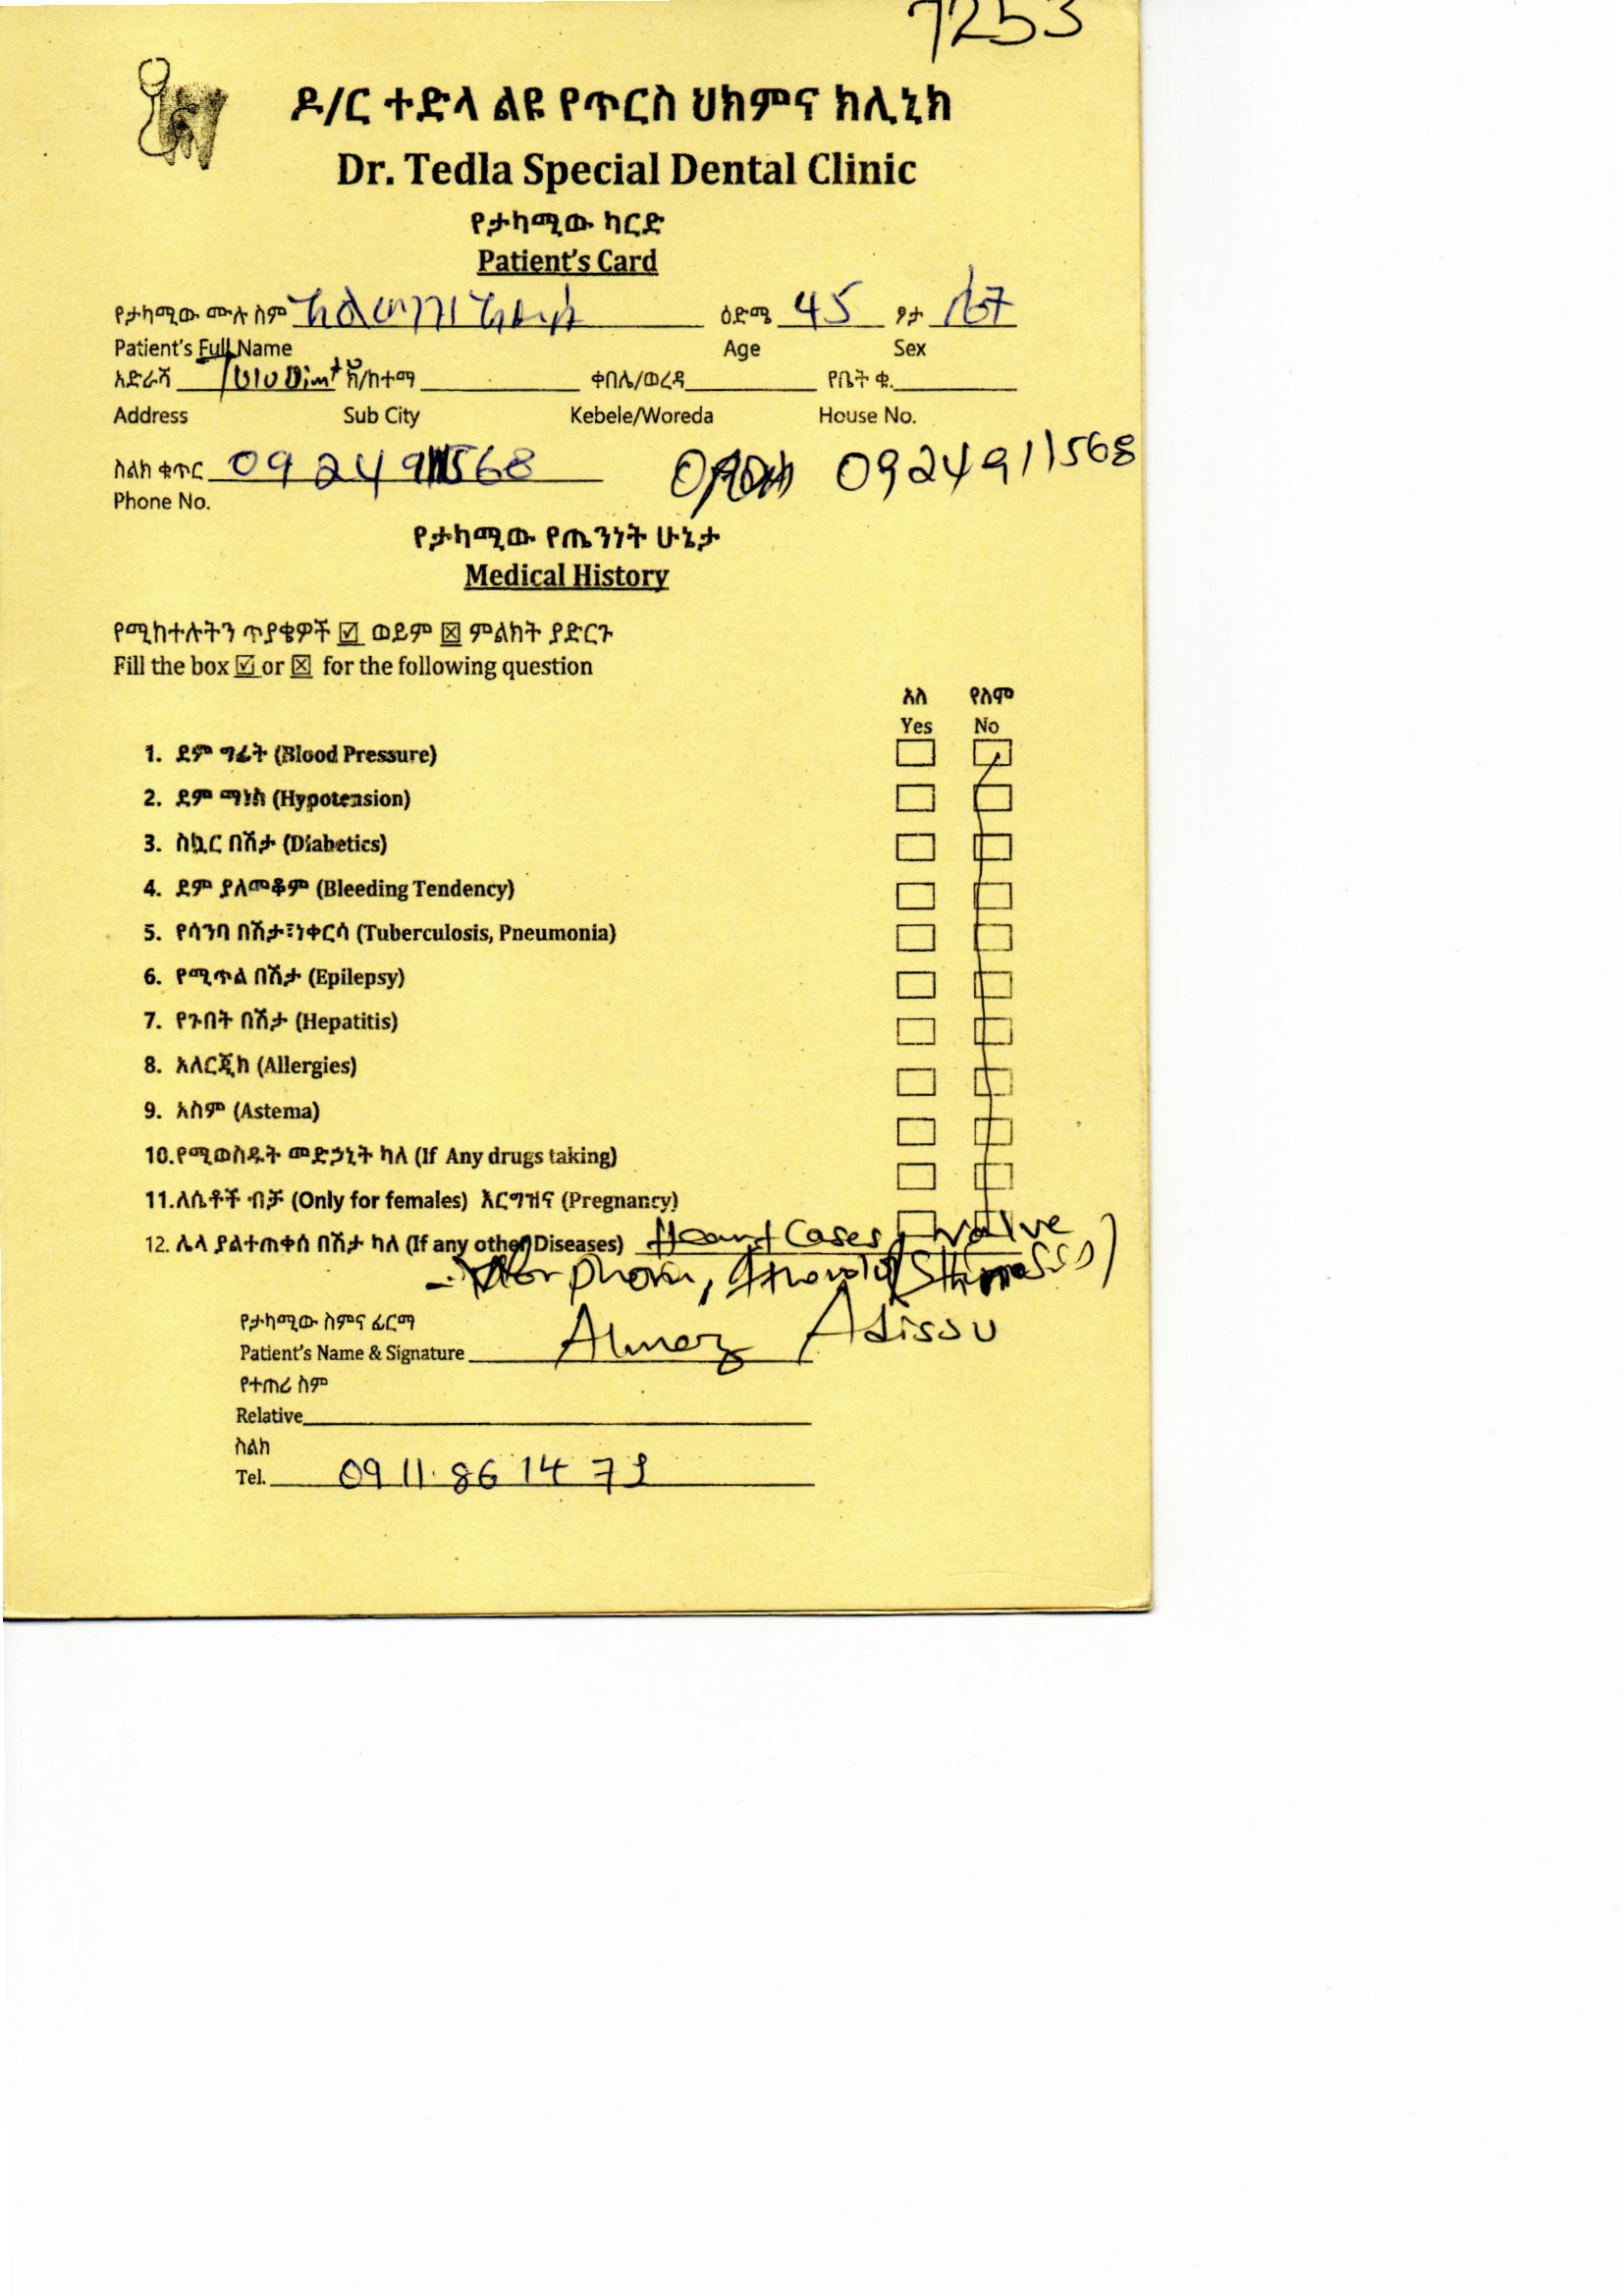 7253
ዶ/ር ተድላ ልዩ የጥርስ ህክምና ክሊኒክ
Dr. Tedla Special Dental Clinic
የታካሚው ካርድ
Patient's Card
የታካሚው ሙሉ ስም ዕድሜ 45 ፆታ ሴት
Patient's Full Name Age Sex
አድራሻ ክ/ከተማ ቀበሌ/ወረዳ የቤት ቁ.
Address Sub City Kebele/Woreda House No.
ስልክ ቁጥር 0924911568 0924911568
Phone No.
የታካሚው የጤንነት ሁኔታ
Medical History
የሚከተሉትን ጥያቄዎች ☑ ወይም ☒ ምልክት ያድርጉ
Fill the box ☑ or ☒ for the following question
አለ የለም
Yes No
1. ደም ግፊት (Blood Pressure)
2. ደም ማነስ (Hypotension)
3. ስኳር በሽታ (Diabetics)
4. ደም ያለመቆም (Bleeding Tendency)
5. የሳንባ በሽታ፣ነቀርሳ (Tuberculosis, Pneumonia)
6. የሚጥል በሽታ (Epilepsy)
7. የጉበት በሽታ (Hepatitis)
8. አለርጂክ (Allergies)
9. አስም (Astema)
10.የሚወስዱት መድኃኒት ካለ (If Any drugs taking)
11.ለሴቶች ብቻ (Only for females) እርግዝና (Pregnancy)
12. ሌላ ያልተጠቀሰ በሽታ ካለ (If any other Diseases) Heart Cases Valve
የታካሚው ስምና ፊርማ
Patient's Name & Signature Almaz Adissu
የተጠሪ ስም
Relative
ስልክ
Tel. 0911 86 14 79